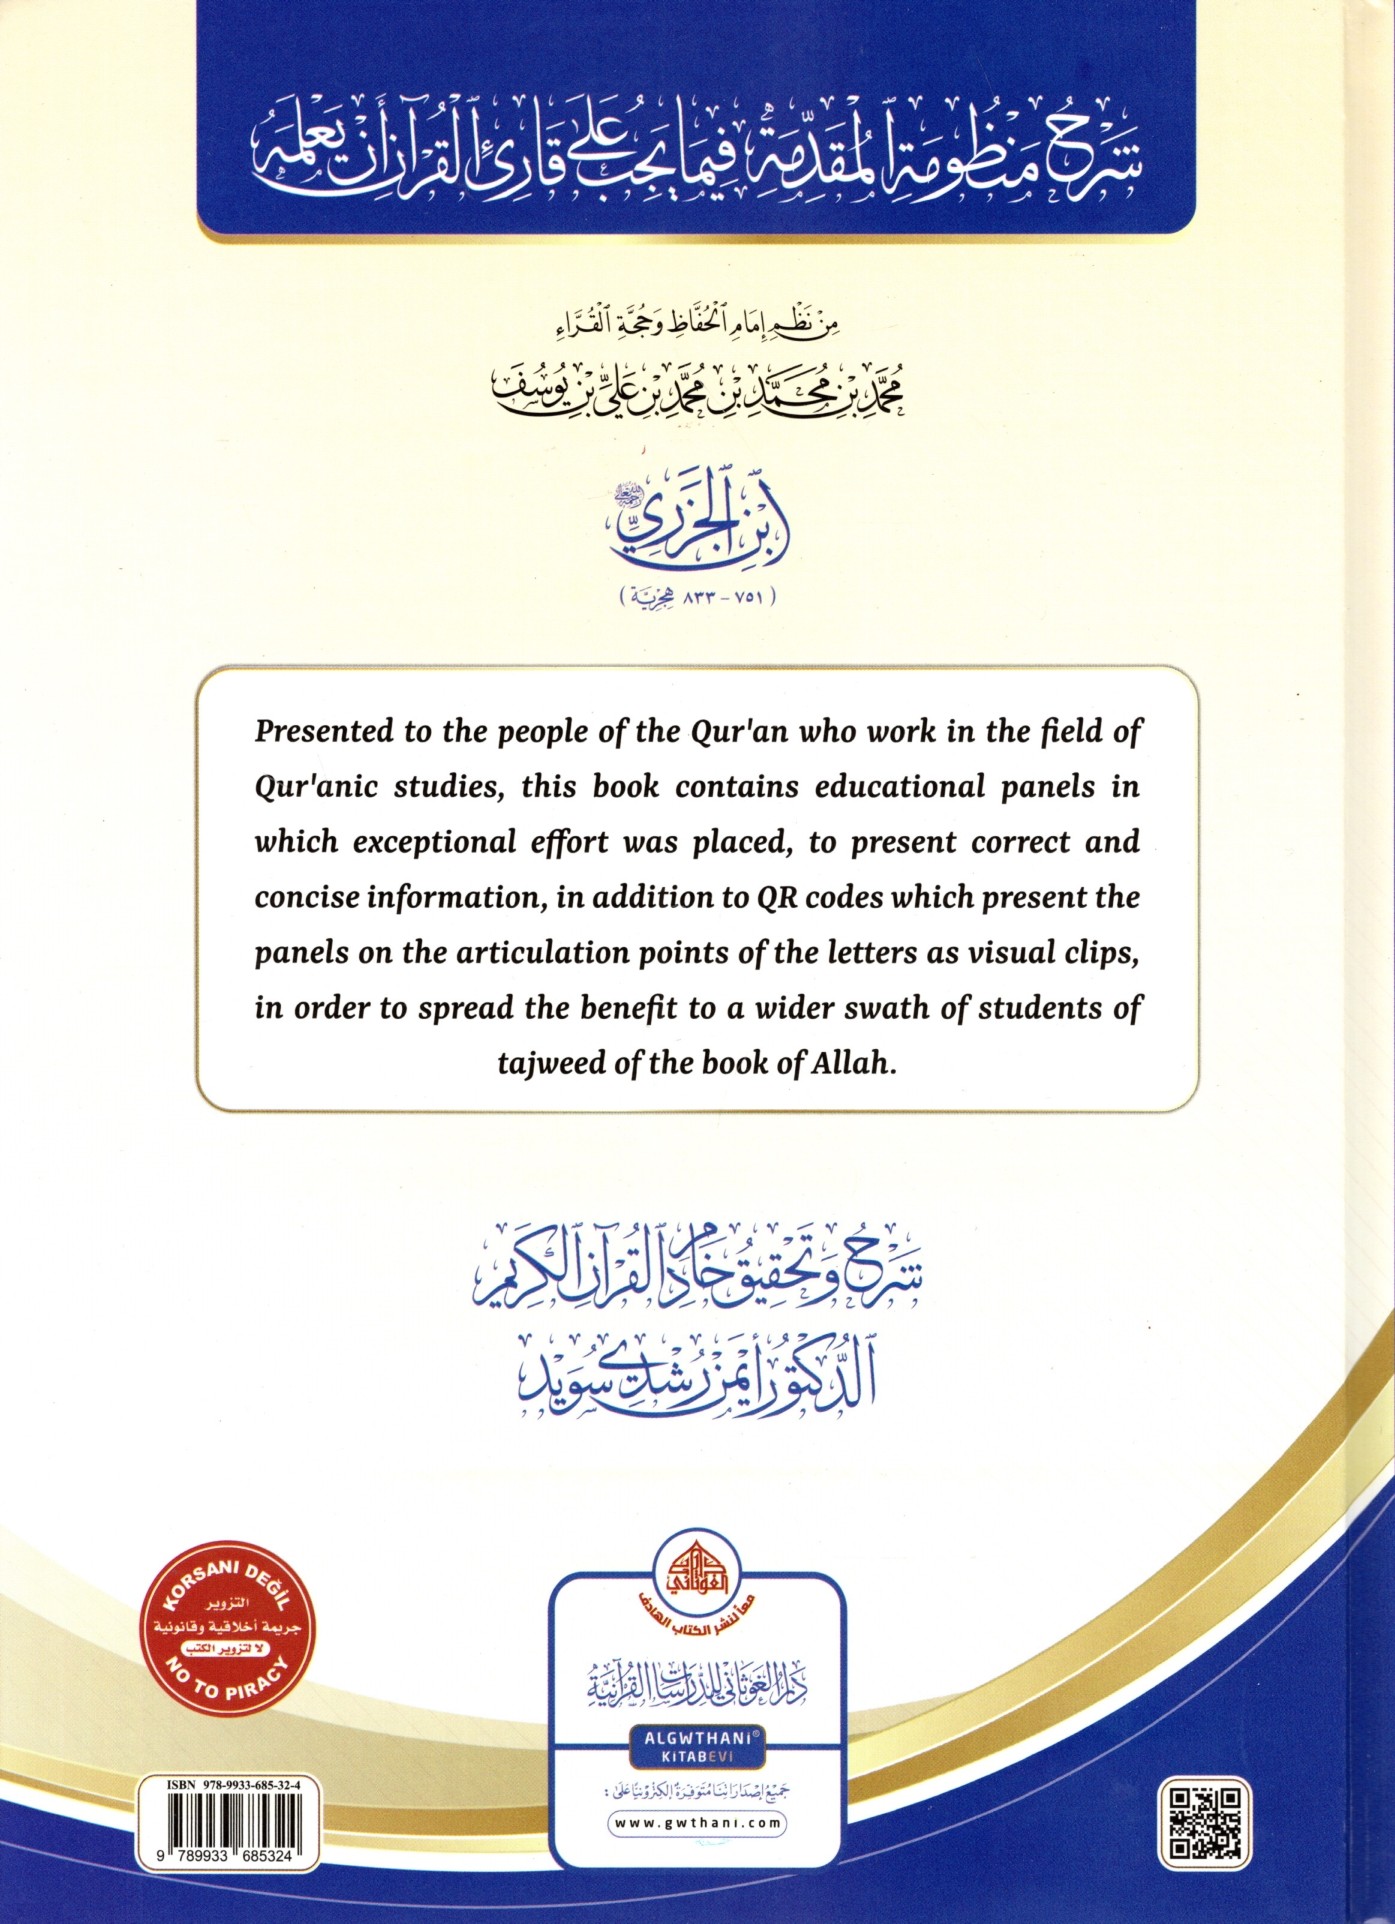 شَرْحُ مَنْظُومَةِ ٱلْمُقَدِّمَةِ فِيمَا يَجِبُ عَلَىٰ قَارِئِ ٱلْقُرْآنِ أَنْ يَعْلَمَهُ
مِنْ نَظْمِ إِمَامِ ٱلْحُفَّاظِ وَحُجَّةِ ٱلْقُرَّاءِ
مُحَمَّدِ بْنِ مُحَمَّدِ بْنِ مُحَمَّدِ بْنِ عَلِيِّ بْنِ يُوسُفَ
ٱبْنِ ٱلْجَزَرِيِّ
( ٧٥١ - ٨٣٣ هِجْرِيَّة )
Presented to the people of the Qur'an who work in the field of
Qur'anic studies, this book contains educational panels in
which exceptional effort was placed, to present correct and
concise information, in addition to QR codes which present the
panels on the articulation points of the letters as visual clips,
in order to spread the benefit to a wider swath of students of
tajweed of the book of Allah.
شَرْحُ وَتَحْقِيقُ خَادِمِ ٱلْقُرْآنِ ٱلْكَرِيمِ
ٱلدُّكْتُور أَيْمَن رُشْدِي سُوَيْد
KORSANI DEĞİL
التزوير
جريمة أخلاقية وقانونية
لا لتزوير الكتب
NO TO PIRACY
دار الغوثاني
معاً لنشر الكتاب الهادف
دَارُ الْغَوْثَانِي لِلدِّرَاسَاتِ الْقُرْآنِيَّةِ
ALGWTHANİ®
KİTABEVİ
جَمِيْعُ إِصْدَارَاتِنَا مُتَوَفِّرَةٌ إِلِكْتِرُونِيًّا عَلَى :
www.gwthani.com
ISBN 978-9933-685-32-4
9 789933 685324